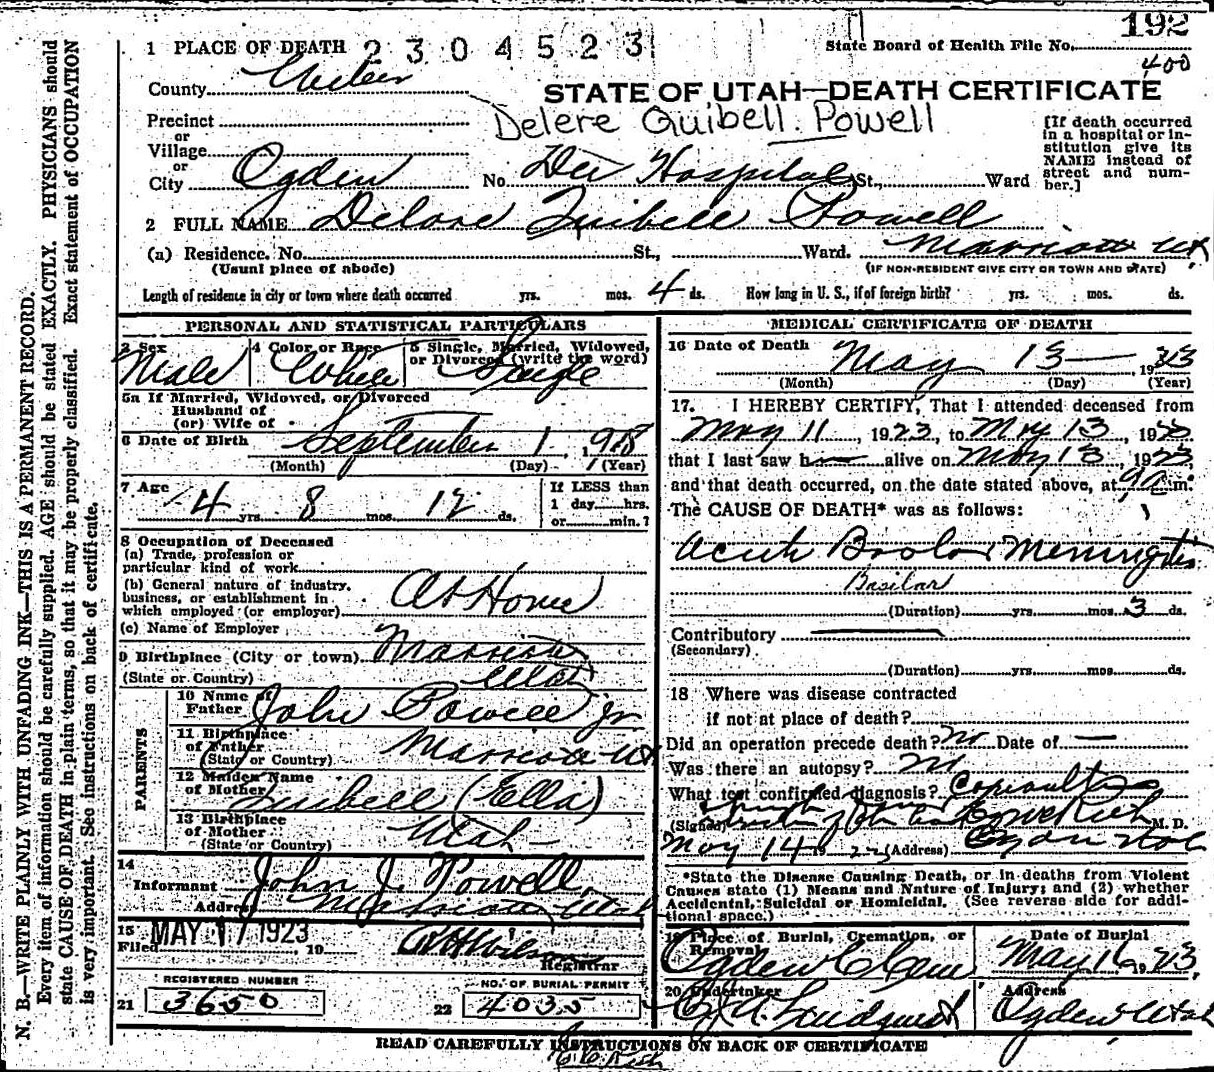 192
1 PLACE OF DEATH 2304523 State Board of Health File No.
400
County Weber
STATE OF UTAH—DEATH CERTIFICATE
Precinct
Delere Quibell Powell
or
Village
or
City Ogden No. Dee Hospital St., Ward
[If death occurred in a hospital or in-
stitution give its
NAME instead of
street and num-
ber.]
2 FULL NAME Delore Quibell Powell
(a) Residence. No. St., Ward. Marriott Ut
(Usual place of abode) (IF NON-RESIDENT GIVE CITY OR TOWN AND STATE)
Length of residence in city or town where death occurred yrs. mos. 4 ds. How long in U. S., if of foreign birth? yrs. mos. ds.
PERSONAL AND STATISTICAL PARTICULARS
3 Sex 4 Color or Race 5 Single, Married, Widowed,
or Divorced (write the word)
Male White Single
5a If Married, Widowed, or Divorced
Husband of
(or) Wife of
6 Date of Birth September 1, 1918
(Month) (Day) (Year)
7 Age 4 yrs. 8 mos. 12 ds.
If LESS than
1 day hrs.
or min.?
8 Occupation of Deceased
(a) Trade, profession or
particular kind of work
(b) General nature of industry,
business, or establishment in
which employed (or employer) At Home
(c) Name of Employer
9 Birthplace (City or town) Marriott
(State or Country) Utah
PARENTS
10 Name of
Father John Powell Jr
11 Birthplace
of Father Marriott Ut
(State or Country)
12 Maiden Name
of Mother Quibell (Ella)
13 Birthplace
of Mother Utah
(State or Country)
14
Informant John J. Powell,
Address Marriott Utah
15
Filed MAY 17 1923, 19
Registrar
REGISTERED NUMBER
21 3650
NO. OF BURIAL PERMIT
22 4035
MEDICAL CERTIFICATE OF DEATH
16 Date of Death May 13— 1923
(Month) (Day) (Year)
17. I HEREBY CERTIFY, That I attended deceased from
May 11, 1923, to May 13, 1923
that I last saw h alive on May 13, 1923,
and that death occurred, on the date stated above, at 9 a m.
The CAUSE OF DEATH* was as follows:
Acute Basilar Meningitis
Basilar
(Duration) yrs. mos. 3 ds.
Contributory
(Secondary)
(Duration) yrs. mos. ds.
18 Where was disease contracted
if not at place of death?
Did an operation precede death? No Date of —
Was there an autopsy? No
What test confirmed diagnosis?
(Signed) M. D.
May 14 1923 (Address) Ogden Utah
*State the Disease Causing Death, or in deaths from Violent
Causes state (1) Means and Nature of Injury; and (2) whether
Accidental, Suicidal or Homicidal. (See reverse side for addi-
tional space.)
19 Place of Burial, Cremation, or
Removal Date of Burial
Ogden City Cem May 16 1923
20 Undertaker Address
Lindquist Ogden Utah
READ CAREFULLY INSTRUCTIONS ON BACK OF CERTIFICATE
N. B.—WRITE PLAINLY WITH UNFADING INK—THIS IS A PERMANENT RECORD.
Every item of information should be carefully supplied. AGE should be stated EXACTLY. PHYSICIANS should
state CAUSE OF DEATH in plain terms, so that it may be properly classified. Exact statement of OCCUPATION
is very important. See instructions on back of certificate.